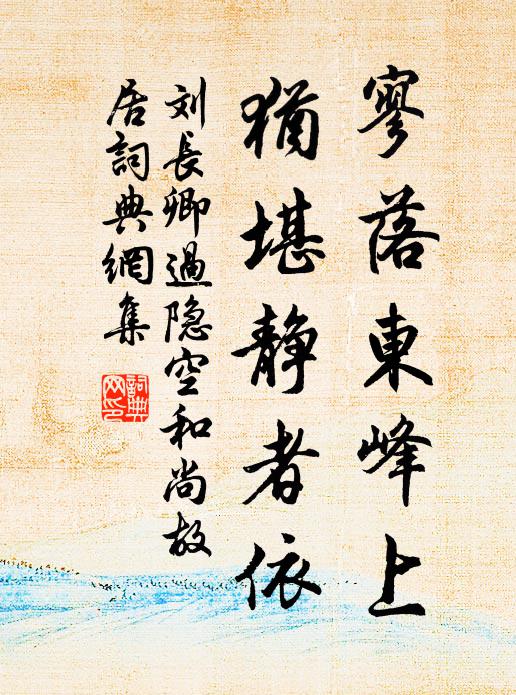 寥落東峰上
猶堪静者依
刘長卿過隐空和尚故
居詞典網集
詞典网印